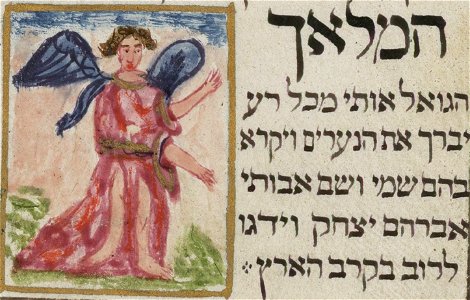 המלאך
הגואל אותי מכל רע
יברך את הנערים ויקרא
בהם שמי ושם אבותי
אברהם יצחק וידגו
לרוב בקרב הארץ: